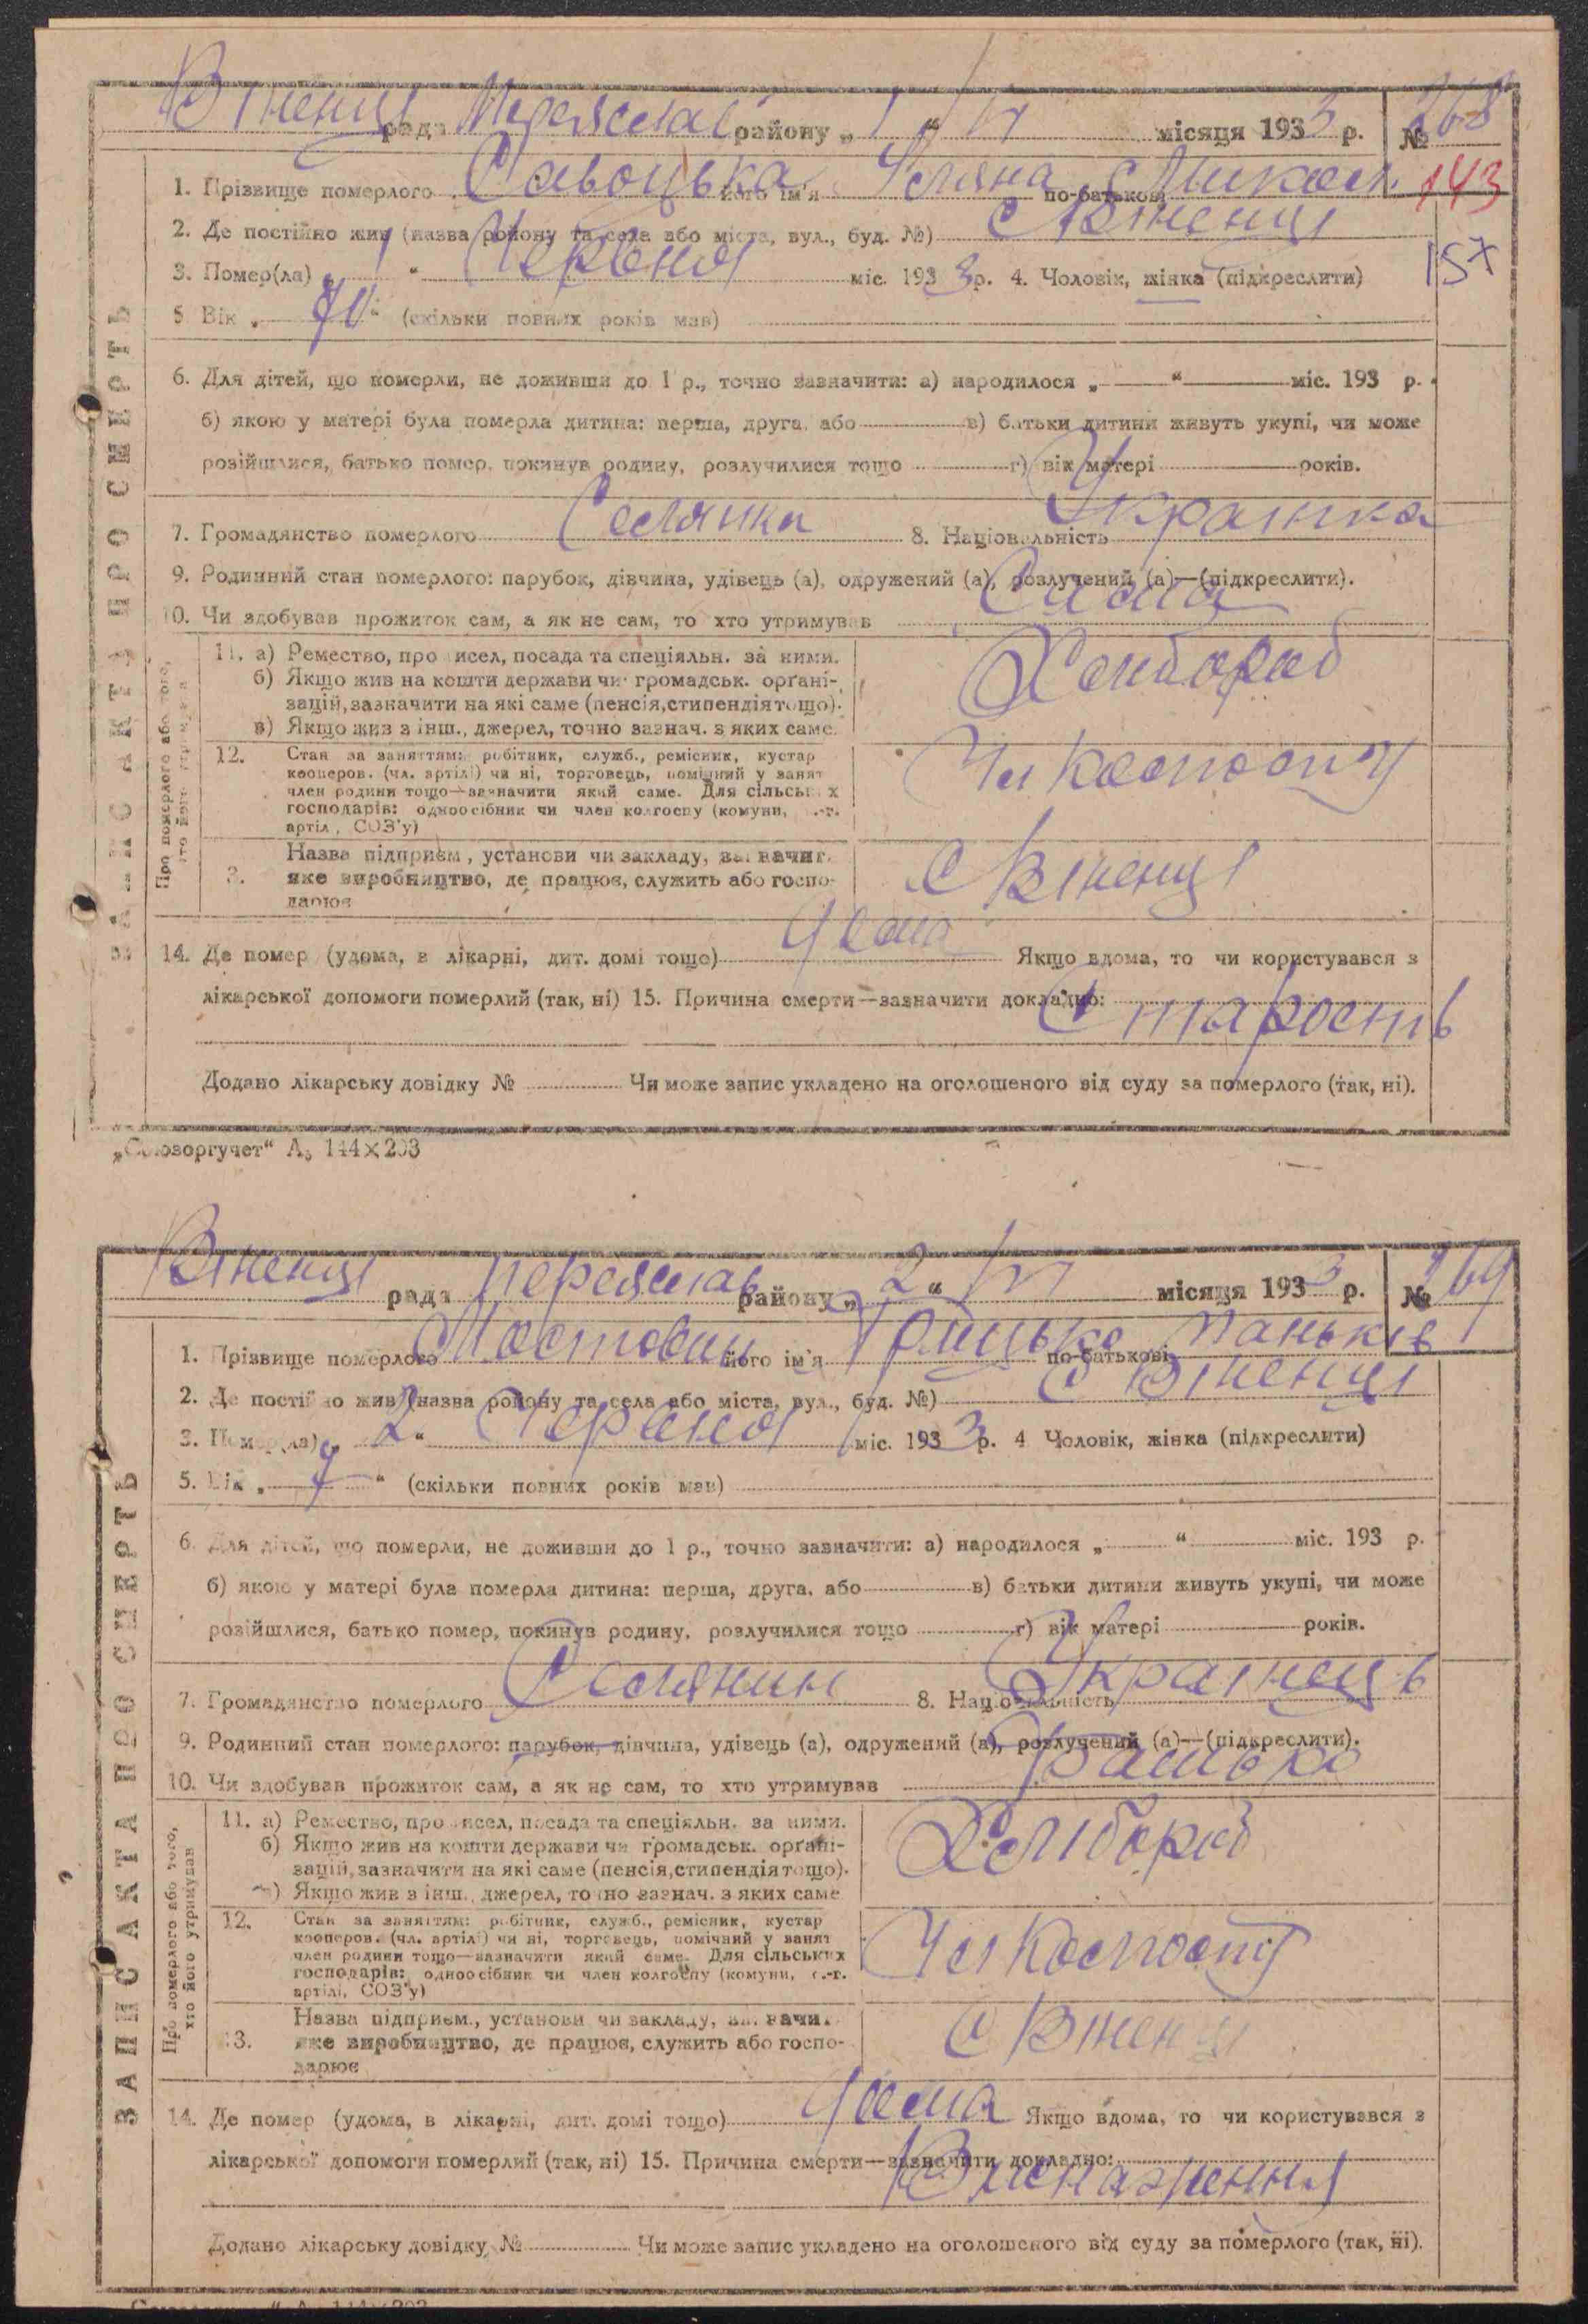 Віненці рада Переяслав району „ 1 “ VI місяця 1933 р. № 268
143
1. Прізвище померлого Савоцька його ім'я Уляна по-батькові Микол.
2. Де постійно жив (назва району та села або міста, вул., буд. №) с Віненці
3. Помер(ла) „ 1 “ Червня міс. 1933 р. 4. Чоловік, жінка (підкреслити)
157
5 Вік „ 70 “ (скільки повних років мав)
6. Для дітей, що померли, не доживши до 1 р., точно зазначити: а) народилося „ “ міс. 193 р.
б) якою у матері була померла дитина: перша, друга, або в) батьки дитини живуть укупі, чи може
розійшлися, батько помер, покинув родину, розлучилися тощо г) вік матері років.
7. Громадянство померлого Селянка 8. Національність Українка
9. Родинний стан померлого: парубок, дівчина, удівець (а), одружений (а), розлучений (а)—(підкреслити).
10. Чи здобував прожиток сам, а як не сам, то хто утримував Сама
ЗАПИС АКТА ПРО СМЕРТЬ
Про померлого або того, хто його утримував
11. а) Ремество, промисел, посада та спеціяльн. за ними. Хлібороб
б) Якщо жив на кошти держави чи громадськ. органі-
зацій, зазначити на які саме (пенсія, стипендія тощо).
в) Якщо жив з інш., джерел, точно зазнач. з яких саме.
12. Стан за заняттям: робітник, служб., ремісник, кустар
кооперов. (чл. артілі) чи ні, торговець, помічний у занят
член родини тощо—зазначити який саме. Для сільських
господарів: одноосібник чи член колгоспу (комуни, с.-г.
артіл, СОЗ'у) Чл колгоспу
Назва підприєм., установи чи закладу, зазначит.
13. яке виробництво, де працює, служить або госпо-
дарює с Віненці
14. Де помер (удома, в лікарні, дит. домі тощо) удома Якщо вдома, то чи користувався з
лікарської допомоги померлий (так, ні) 15. Причина смерти—зазначити докладно: Старость
Додано лікарську довідку № Чи може запис укладено на оголошеного від суду за померлого (так, ні).
„Союзоргучет“ А5 144×203
Віненці рада Переяслав району „ 2 “ VI місяця 1933 р. № 269
1. Прізвище померлого Мостовий його ім'я Грицько по-батькові Паньків
2. Де постійно жив (назва району та села або міста, вул., буд. №) с Віненці
3. Помер(ла) „ 2 “ Червня міс. 1933 р. 4 Чоловік, жінка (підкреслити)
5. Вік „ 7 “ (скільки повних років мав)
6. Для дітей, що померли, не доживши до 1 р., точно зазначити: а) народилося „ “ міс. 193 р.
б) якою у матері була померла дитина: перша, друга, або в) батьки дитини живуть укупі, чи може
розійшлися, батько помер, покинув родину, розлучилися тощо г) вік матері років.
7. Громадянство померлого Селянин 8. Національність Українець
9. Родинний стан померлого: парубок, дівчина, удівець (а), одружений (а), розлучений (а)—(підкреслити).
10. Чи здобував прожиток сам, а як не сам, то хто утримував Батько
ЗАПИС АКТА ПРО СМЕРТЬ
Про померлого або того, хто його утримував
11. а) Ремество, промисел, посада та спеціяльн. за ними. Хлібороб
б) Якщо жив на кошти держави чи громадськ. органі-
зацій, зазначити на які саме (пенсія, стипендія тощо).
в) Якщо жив з інш., джерел, точно зазнач. з яких саме
12. Стан за заняттям: робітник, служб., ремісник, кустар
кооперов. (чл. артілі) чи ні, торговець, помічний у занят
член родини тощо—зазначити який саме. Для сільських
господарів: одноосібник чи член колгоспу (комуни, с.-г.
артілі, СОЗ'у) Чл колгоспу
Назва підприєм., установи чи закладу, зазначи.
13. яке виробництво, де працює, служить або госпо-
дарює с Віненці
14. Де помер (удома, в лікарні, дит. домі тощо) удома Якщо вдома, то чи користувався з
лікарської допомоги померлий (так, ні) 15. Причина смерти—зазначити докладно: Виснаження
Додано лікарську довідку № Чи може запис укладено на оголошеного від суду за померлого (так, ні).